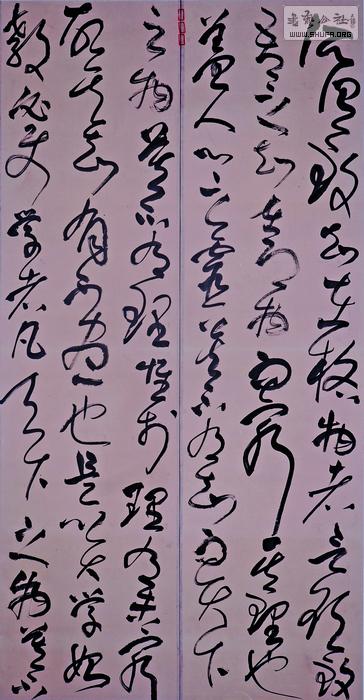 所謂致知在格物者言欲致
吾之知在即物而窮其理也
蓋人心之靈莫不有知而天下
之物莫不有理惟於理有未窮
故其知有不盡也是以大學始
教必使學者凡天下之物莫不
WWW.SHUFA.ORG